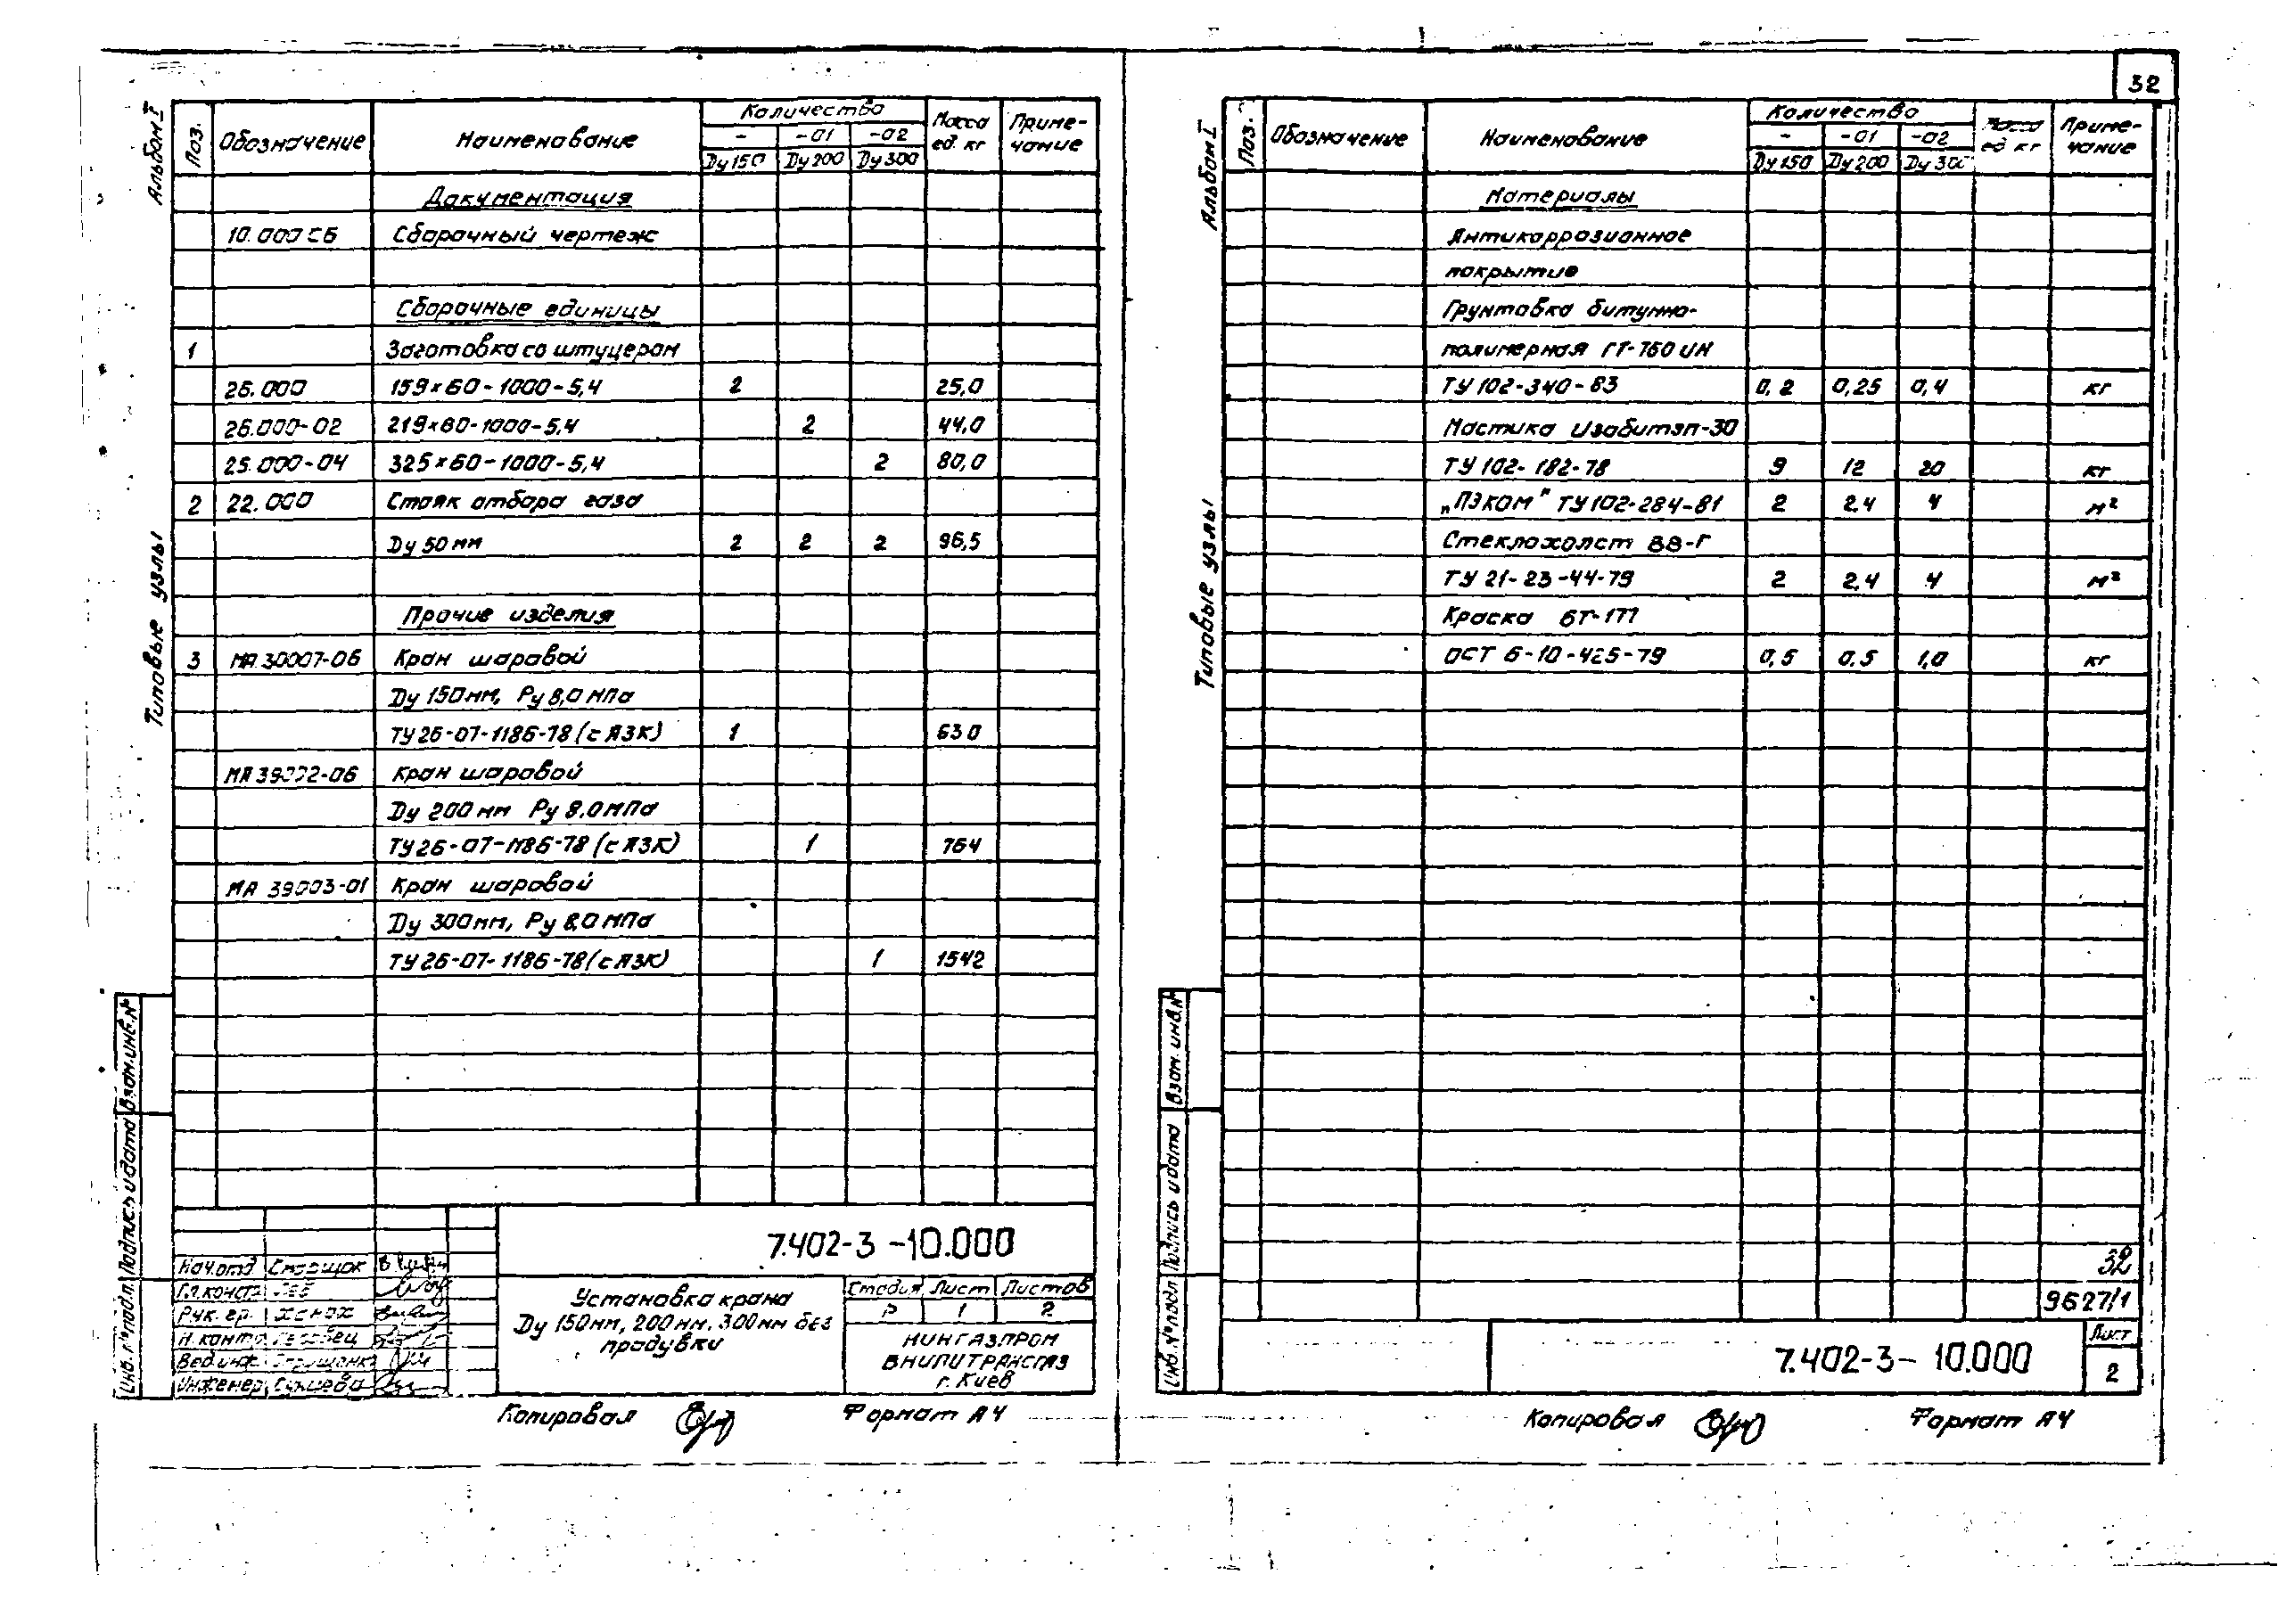 32
Альбом I
Типовые узлы
Поз. Обозначение Наименование Количество Масса ед. кг Приме-чание
- -01 -02
Ду 150 Ду 200 Ду 300
Документация
10.000 СБ Сборочный чертеж
Сборочные единицы
1 Заготовка со штуцером
26.000 159×60-1000-5,4 2 25,0
26.000-02 219×60-1000-5,4 2 44,0
26.000-04 325×60-1000-5,4 2 80,0
2 22.000 Стояк отбора газа
Ду 50 мм 2 2 2 96,5
Прочие изделия
3 МА 30007-06 Кран шаровой
Ду 150мм, Ру 8,0 МПа
ТУ 26-07-1186-78 (с ЯЗК) 1 630
МА 39002-06 Кран шаровой
Ду 200 мм Ру 8,0 МПа
ТУ 26-07-1186-78 (с ЯЗК) 1 764
МА 39003-01 Кран шаровой
Ду 300мм, Ру 8,0 МПа
ТУ 26-07-1186-78 (с ЯЗК) 1 1542
Взам.инв.№
Подпись и дата
Инв.№подл.
7.402-3-10.000
Нач.отд
Гл.констр
Рук. гр.
Н.контр
Вед.инж
Инженер
Установка крана
Ду 150мм, 200мм, 300мм без
продувки
Стадия Лист Листов
Р 1 2
МИНГАЗПРОМ
ВНИПИТРАНСГАЗ
г. Киев
Копировал Формат А4
Альбом I
Типовые узлы
Поз. Обозначение Наименование Количество Масса ед кг Приме-чание
- -01 -02
Ду 150 Ду 200 Ду 300
Материалы
Антикоррозионное
покрытие
Грунтовка битумно-
полимерная ГТ-760 ИН
ТУ 102-340-83 0,2 0,25 0,4 кг
Мастика Изобитэп-30
ТУ 102-182-78 9 12 20 кг
„ПЭКОМ" ТУ 102-284-81 2 2,4 4 м²
Стеклохолст ВВ-Г
ТУ 21-23-44-79 2 2,4 4 м²
Краска БТ-177
ОСТ 6-10-426-79 0,5 0,5 1,0 кг
Взам. инв.№
Подпись и дата
Инв.№подл.
32
9627/1
7.402-3-10.000
Лист
2
Копировал Формат А4